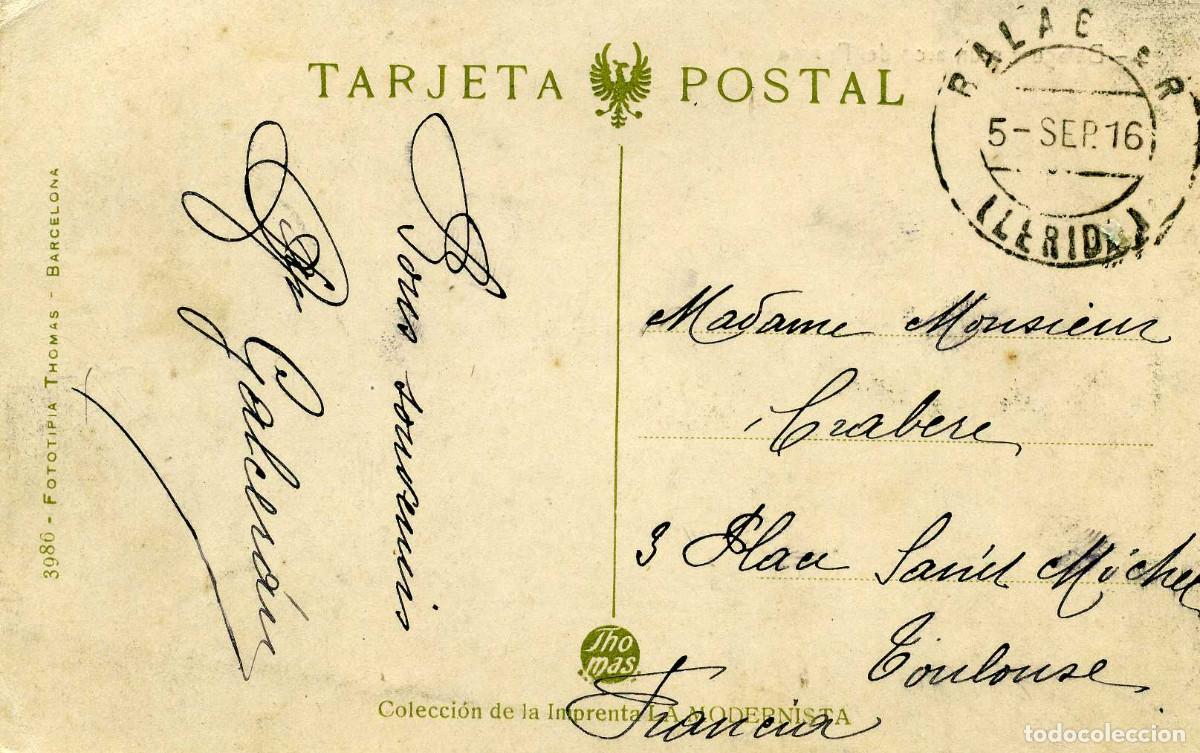 TARJETA POSTAL
BALAGUER
5-SEP.16
(LERIDA)
3986 - FOTOTIPIA THOMAS - BARCELONA
Bons souvenirs
Galcerán
Madame Monsieur
Crabere
3 Place Saint Michel
Toulouse
Francia
Thomas
Colección de la Imprenta LA MODERNISTA
todocoleccion